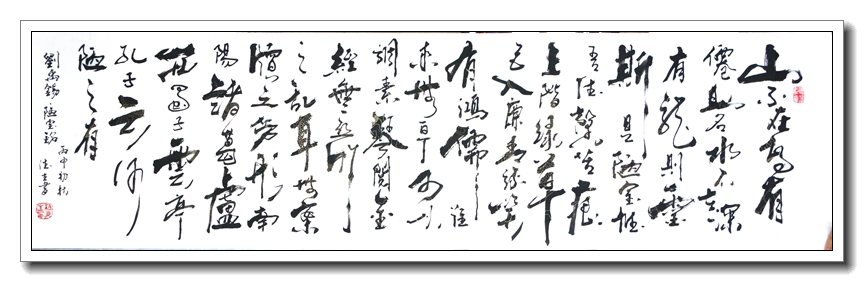 山不在高有
僊則名水不在深
有龍則靈
斯是陋室惟
吾德馨苔痕
上階綠草
色入簾青談笑
有鴻儒往
来無白丁可以
調素琴閱金
經無絲竹
之亂耳無案
牘之勞形南
陽諸葛廬
西蜀子雲亭
孔子云何
陋之有
劉禹錫陋室銘
丙申初秋
書